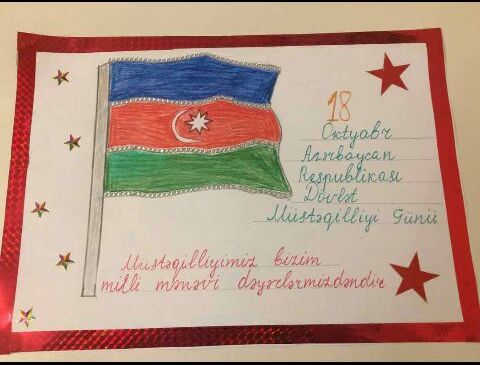 18
Oktyabr
Azərbaycan
Respublikası
Dövlət
Müstəqilliyi Günü
Mustəqilliyimiz bizim
milli mənəvi dəyərlərmizdəndir